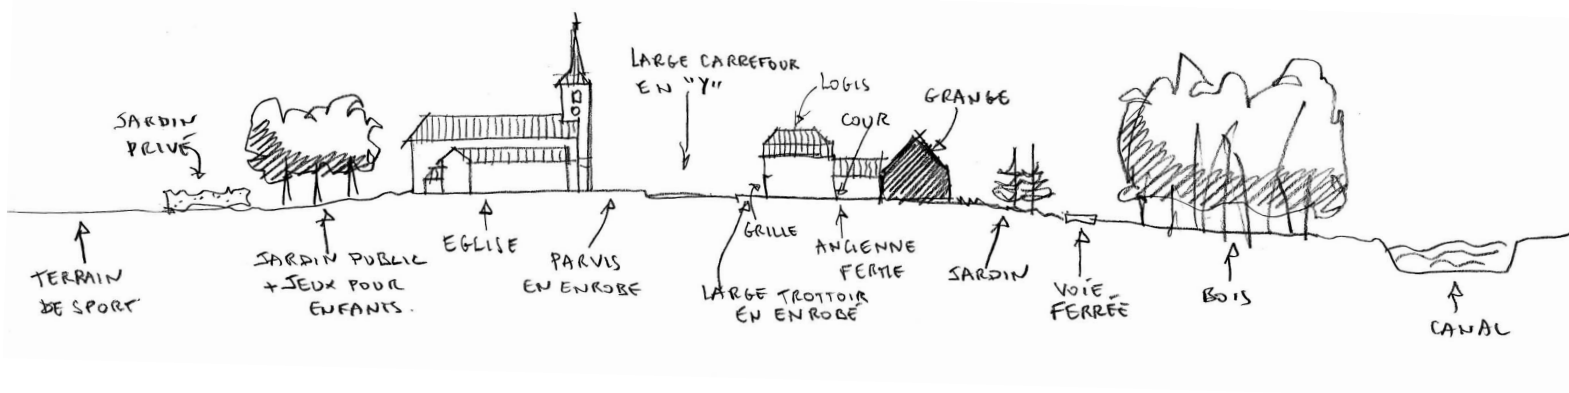 JARDIN
PRIVÉ
LARGE CARREFOUR
EN "Y"
LOGIS
COUR
GRANGE
TERRAIN
DE SPORT
JARDIN PUBLIC
+ JEUX POUR
ENFANTS.
EGLISE
PARVIS
EN ENROBE
GRILLE
LARGE TROTTOIR
EN ENROBÉ
ANCIENNE
FERME
JARDIN
VOIE
FERRÉE
BOIS
CANAL